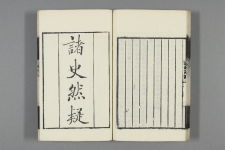 諸史然疑